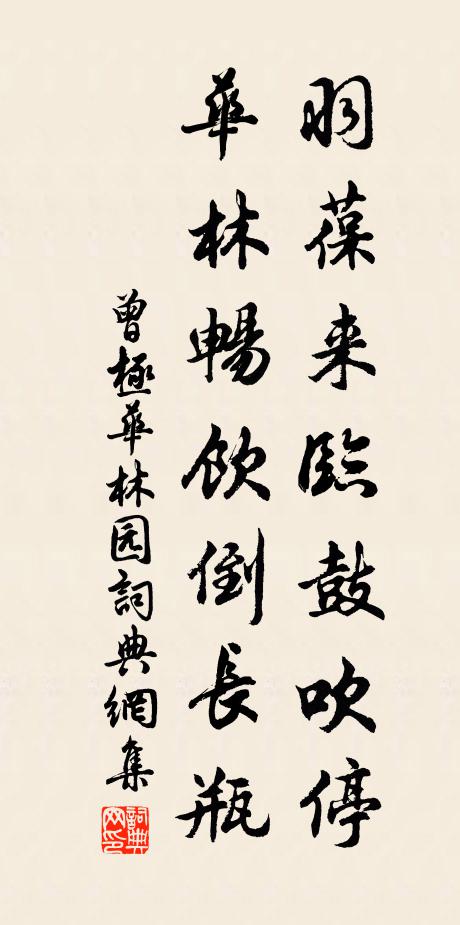 羽葆来臨鼓吹停
華林暢飲倒長瓶
曾極華林园詞典網集
詞典网印